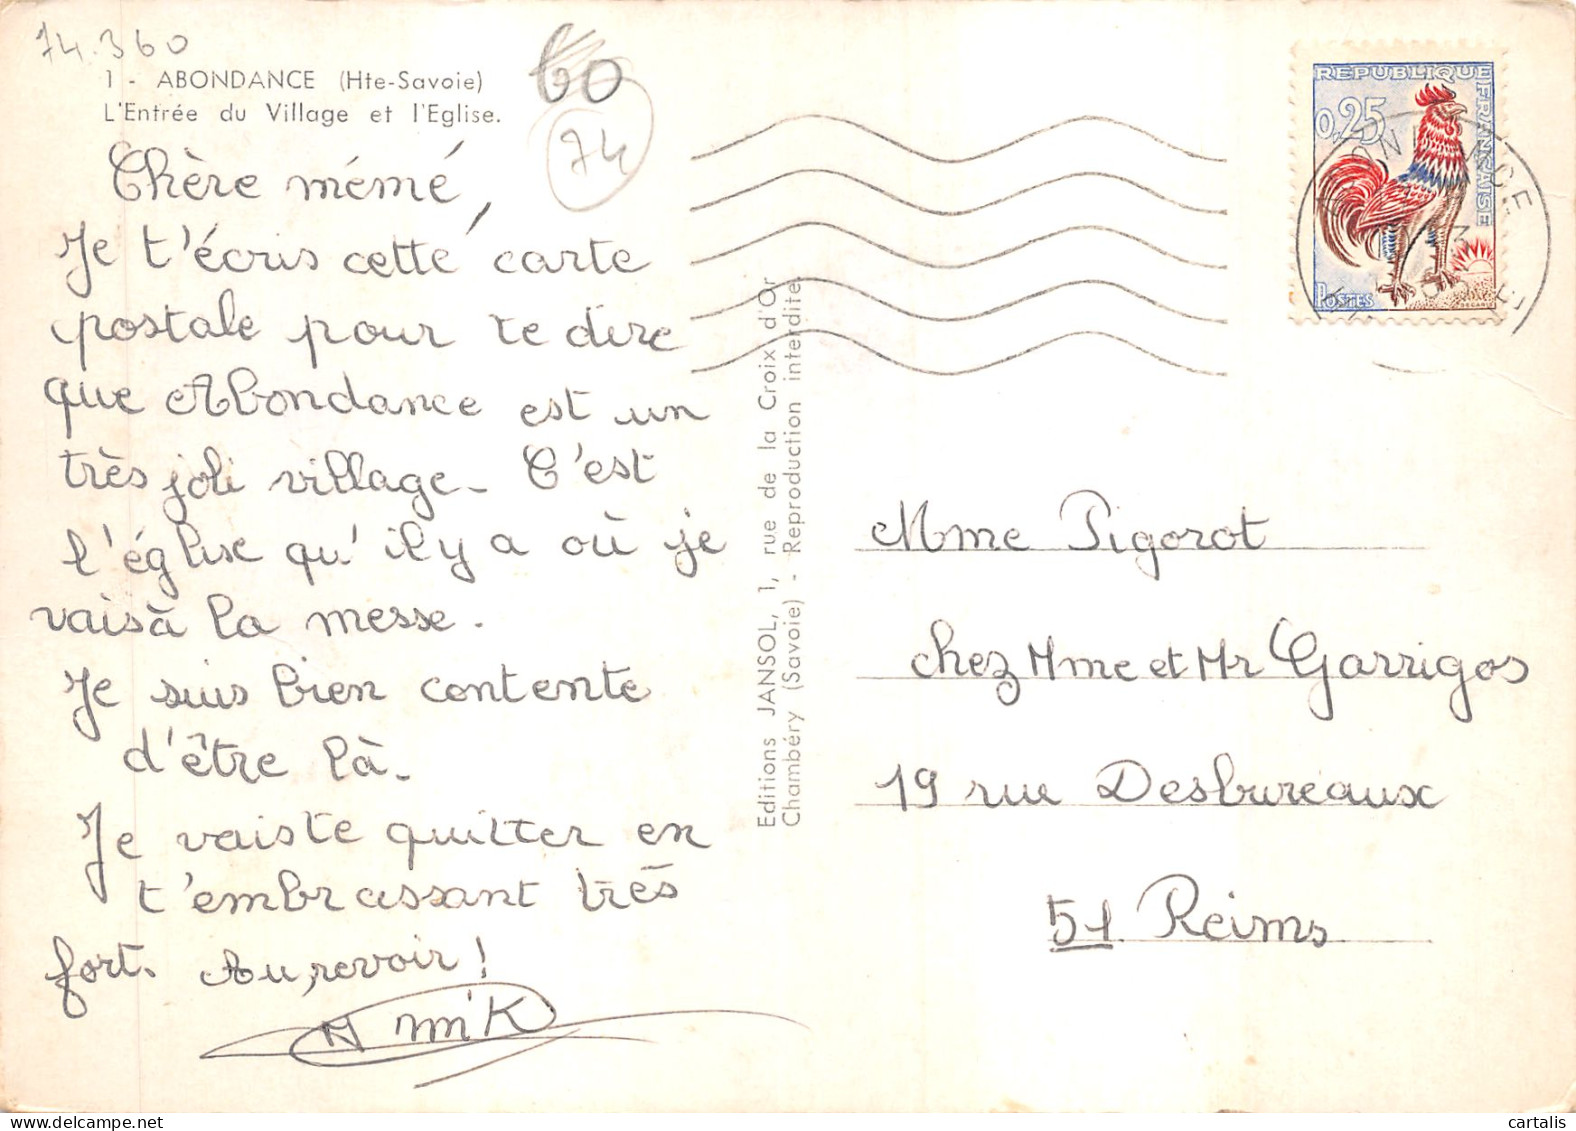 74.360
60
74
1 - ABONDANCE (Hte-Savoie)
L'Entrée du Village et l'Eglise.
Chère mémé,
Je t'écris cette carte
postale pour te dire
que Abondance est un
très joli village. C'est
l'église qu'il y a où je
vais à la messe.
Je suis bien contente
d'être là.
Je vais te quitter en
t'embrassant très
fort. Au revoir !
Editions JANSOL, 1, rue de la Croix d'Or
Chambéry (Savoie) - Reproduction interdite.
REPUBLIQUE FRANÇAISE
0,25
POSTES
Mme Pigorot
chez Mme et Mr Garrigos
19 rue Desbureaux
51 Reims
cartalis